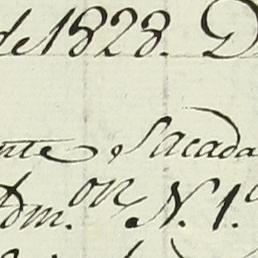 de 1828. D
nte Sacada
Adm.on N. 1.a